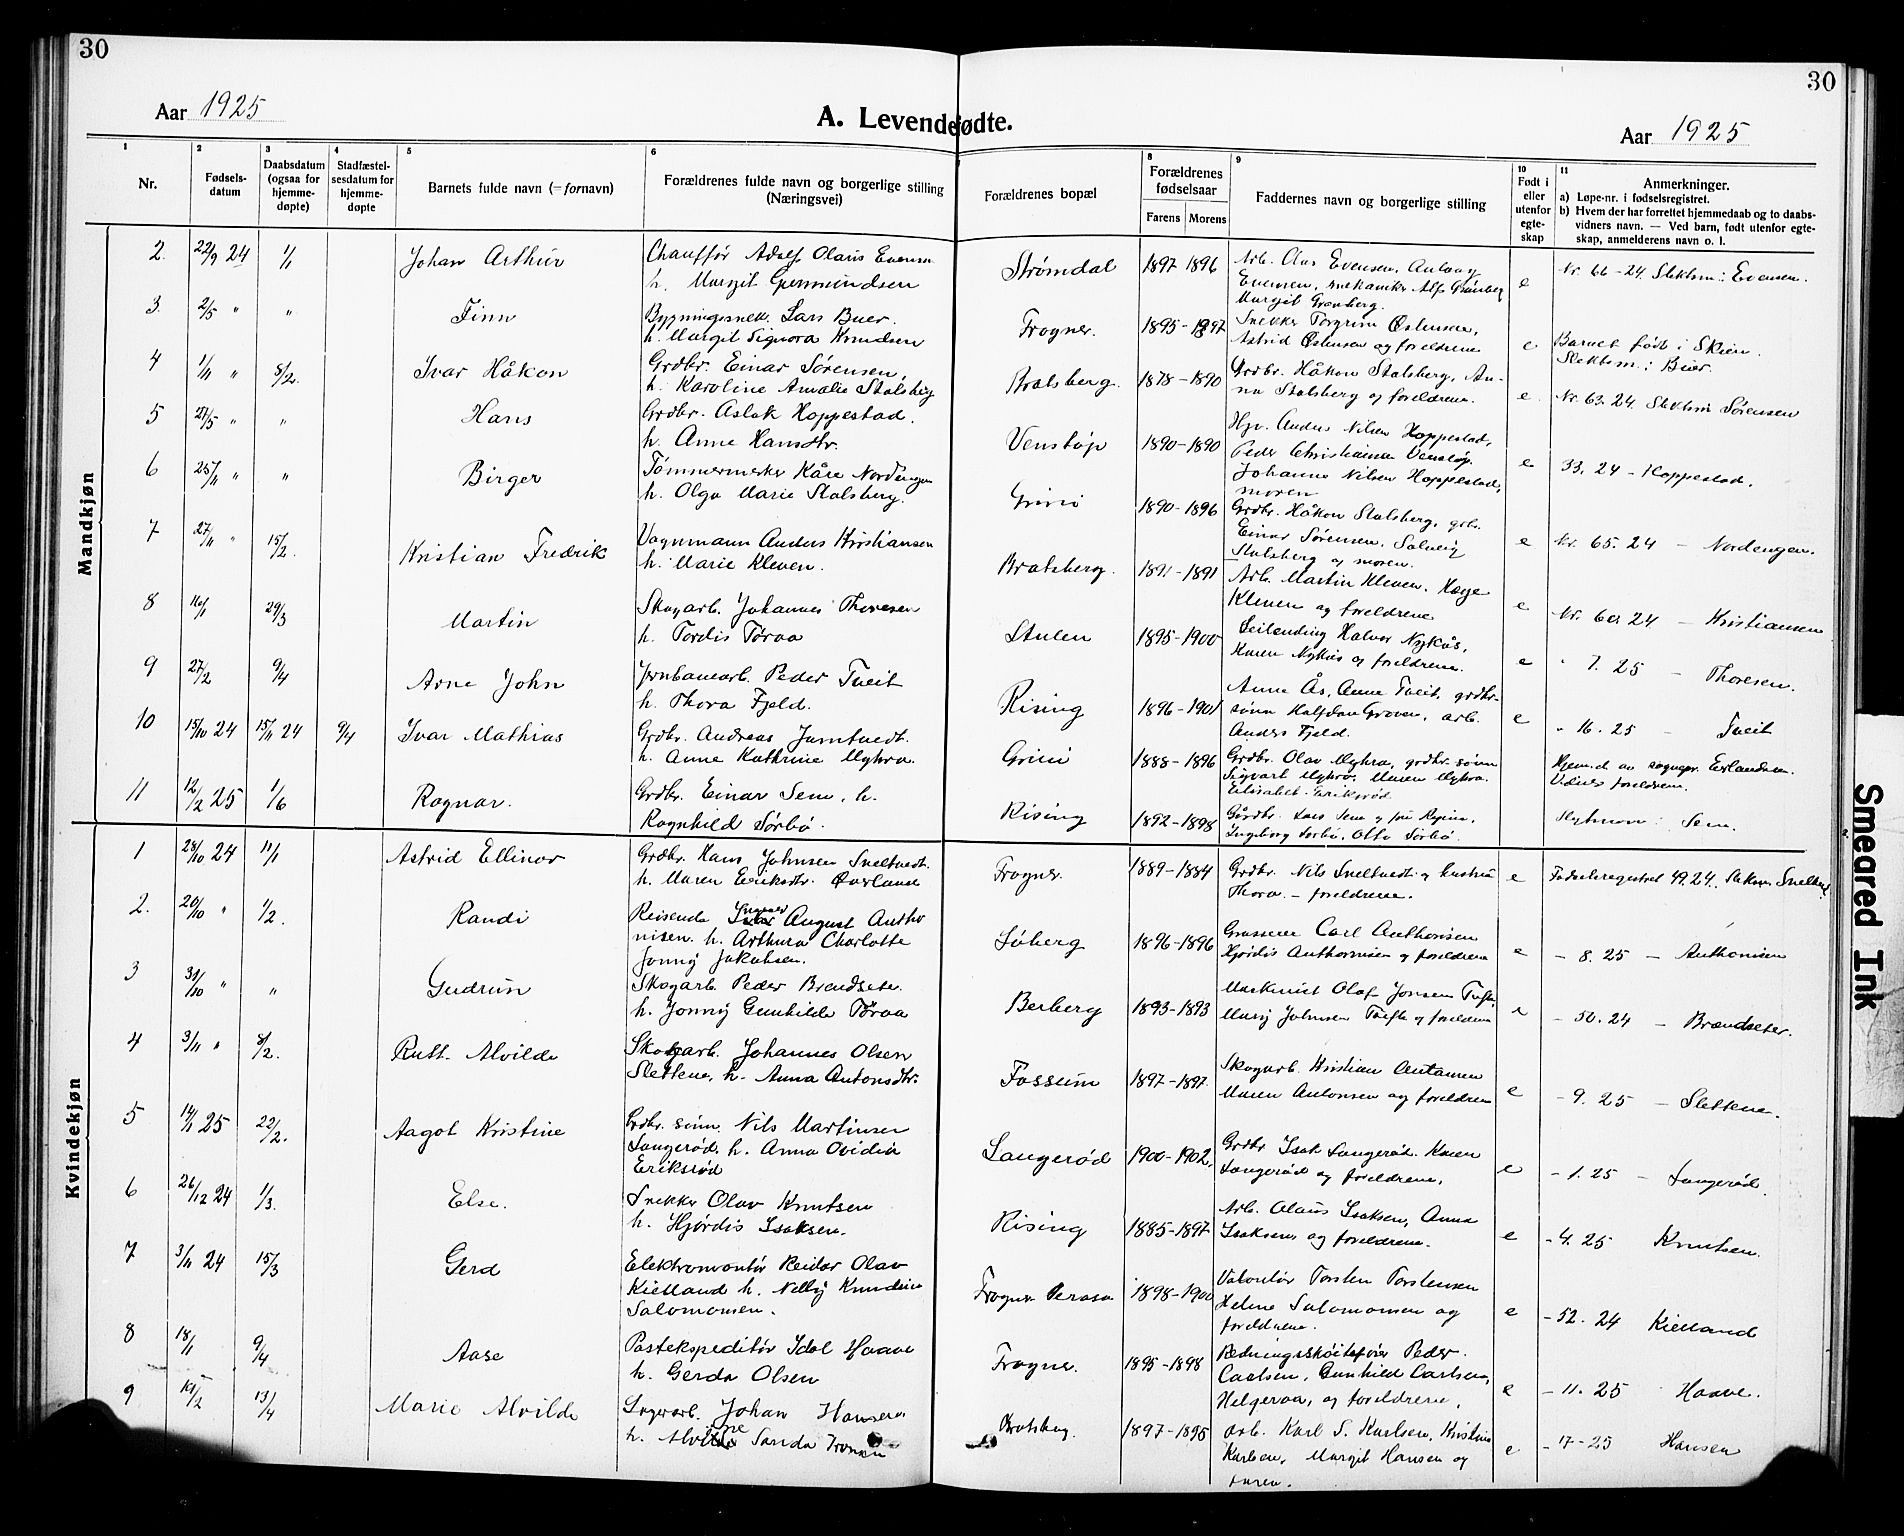 30
30
Aar 1925
A. Levendefødte.
Aar 1925
1 2 3 4 5 6 8 9 10 11
Nr.
Fødsels-
datum
Daabsdatum
(ogsaa for
hjemme-
døpte)
Stadfæstel-
sesdatum for
hjemme-
døpte
Barnets fulde navn (=fornavn)
Forældrenes fulde navn og borgerlige stilling
(Næringsvei)
Forældrenes bopæl
Forældrenes
fødselsaar
Farens Morens
Faddernes navn og borgerlige stilling
Født i
eller
utenfor
egte-
skap
Anmerkninger.
a) Løpe-nr. i fødselsregistret.
b) Hvem der har forrettet hjemmedaab og to daabs-
vidners navn. — Ved barn, født utenfor egte-
skap, anmelderens navn o. l.
Mandkjøn
2. 22/9 24 1/1 Johan Arthur
Chauffør Adolf Olaus Evensen
h. Margit Germundsen
Strømdal 1897-1896
Arb. Olas Evensen, Aslaug
Evensen, mekaniker Alf Granberg
Margit Granberg.
e Nr. 66-24. Slektsn: Evensen.
3. 2/5 " " Finn
Bygningssnek. Lars Buer.
h. Margit Signora Knudsen
Frogner. 1895-1897
Snekker Torgrim Østensen,
Astrid Østensen og foreldrene
e Barnet født i Skien.
Slektsn: Buer.
4 1/11 " 8/2. Ivar Håkon
Grdbr. Einar Sørensen,
h. Karoline Amalie Stalsberg
Bratsberg. 1878-1890
Grdbr. Håkon Stalsberg, An-
na Stalsberg og foreldrene.
e. Nr. 63. 24. Slektsn Sørensen
5 27/5 " " Hans
Grdbr. Aslak Hoppestad.
h. Anne Hansdtr.
Venstøp 1890-1890
Hgv. Anders Nilsen Hoppestad,
Peder Christiansen Venstøp.
Johanne Nilsen Hoppestad,
moren
e 33. 24 - Hoppestad.
6 25/11 " " Birger
Tømmermerker Kåre Nordengen
h. Olga Marie Stalsberg.
Grini 1890-1896
Grdbr. Håkon Stalsberg, grb.
Einar Sørensen, Solveig
Stalsberg og moren.
e Nr. 65. 24 - Nordengen.
7 27/11 " 15/2. Kristian Fredrik
Vognmann Anders Kristiansen
h. Marie Kleven.
Bratsberg. 1891-1891
Arb. Martin Kleven, Hege
Kleven og foreldrene
e Nr. 60. 24 - Kristiansen
8 16/1 29/3 Martin
Skogarb. Johannes Thoresen
h. Tordis Tøraa
Stulen 1895-1900
Leilending Halvor Nykås,
Karen Nykås og foreldrene.
e " 7. 25 - Thoresen.
9 27/2 9/4 Arne John
Jernbanearb. Peder Tveit
h. Thora Fjeld.
Rising 1896-1901
Anne Ås, Anne Tveit, grdbr-
sønn Halfdan Groven, arb.
Anders Fjeld.
e " 16. 25 - Tveit
10 15/10 24 15/11 24 9/4 Ivar Mathias
Grdbr. Andreas Jamtvedt.
h. Anne Kathrine Myhra.
Grini 1888-1896
Grdbr. Olav Myhra, grdbr. sønn
Sigvart Myhra, Maren Myhra.
Elisabet Eriksrød.
Hjemd. av sognepr. Erlandsen.
Vidner foreldrene.
11 12/2 25 1/6 Ragnar.
Grdbr. Einar Sem, h.
Ragnhild Sørbø.
Rising 1892-1898
Gårdbr. Lars Sem og fru Regine,
Ingeborg Sørbø, Otto Sørbø.
Slektsn: Sem.
Kvindekjøn
1 28/10 24 11/1 Astrid Ellinor
Grdbr. Hans Johnsen Sneltvedt.
h. Maren Eriksdtr. Øverland
Frogner. 1889-1884
Grdbr. Nils Sneltvedt og hustru
Thora - foreldrene.
e Fødselsregistret 49. 24. Slektsn. Sneltvedt.
2. 20/10 " 1/2. Randi
Reisende Ingvald August Antho
nisen. h. Arthura Charlotte
Jonny Jakobsen.
Søberg 1896-1896
Grosserer Carl Anthonisen
Hjørdis Anthonisen og foreldrene
e - 8. 25 - Anthonisen
3 31/10 " " Gudrun
Skogarb. Peder Brendseter.
h. Jonny Gunhilda Tøraa
Berberg 1893-1893
Maskinist Olaf Jonsen Tufte,
Marg Johnsen Tufte og foreldrene
e - 50. 24 - Brændseter.
4 3/11 " 8/2. Rutt Alvilde
Skogarb. Johannes Olsen
Slettene, h. Anna Antonsdtr.
Fossum 1897-1897.
Skogarb. Kristian Antonsen
Maren Antonsen og foreldrene
e - 9. 25 - Slettene.
5 14/1 25 22/2. Aagot Kristine
Grdbr. sønn Nils Martinsen
Langerød. h. Anna Ovidia
Eriksrød
Langerød 1900-1902.
Grdbr Isak Langerød. Karen
Langerød og foreldrene.
e - 1. 25 - Langerød.
6 26/12 24 1/3. Else.
Snekker Olav Knutsen
h. Hjørdis Isaksen.
Rising 1885-1897
Arb. Olaus Isaksen, Anna
Isaksen og foreldrene.
e - 4. 25 Knutsen.
7 3/11 24 15/3 Gerd
Elektromontør Reidar Olav
Kielland h. Nelly Knudsine
Salomonsen.
Frogner 1898-1900
Valontør Torsten Torstensen
Helene Salomonsen og
foreldrene.
e - 52. 24 Kielland
8 18/1 9/4 Aase
Postekspeditør Idol Haave
h. Gerda Olsen
Frogner. 1895-1898
Redningsskøitefører Peder
Carlsen, Gunhild Carlsen,
Helgeroa, og foreldrene.
e - 11. 25 Haave.
9 19/2 13/4 Marie Alvilde
Sagarb. Johan Hansen
h. Alvilde Sanda
Bratsberg. 1897-1895
arb. Karl S. Karlsen, Kristine
Karlsen, Margit Hansen og
e - 17-25 Hansen
Smeared Ink